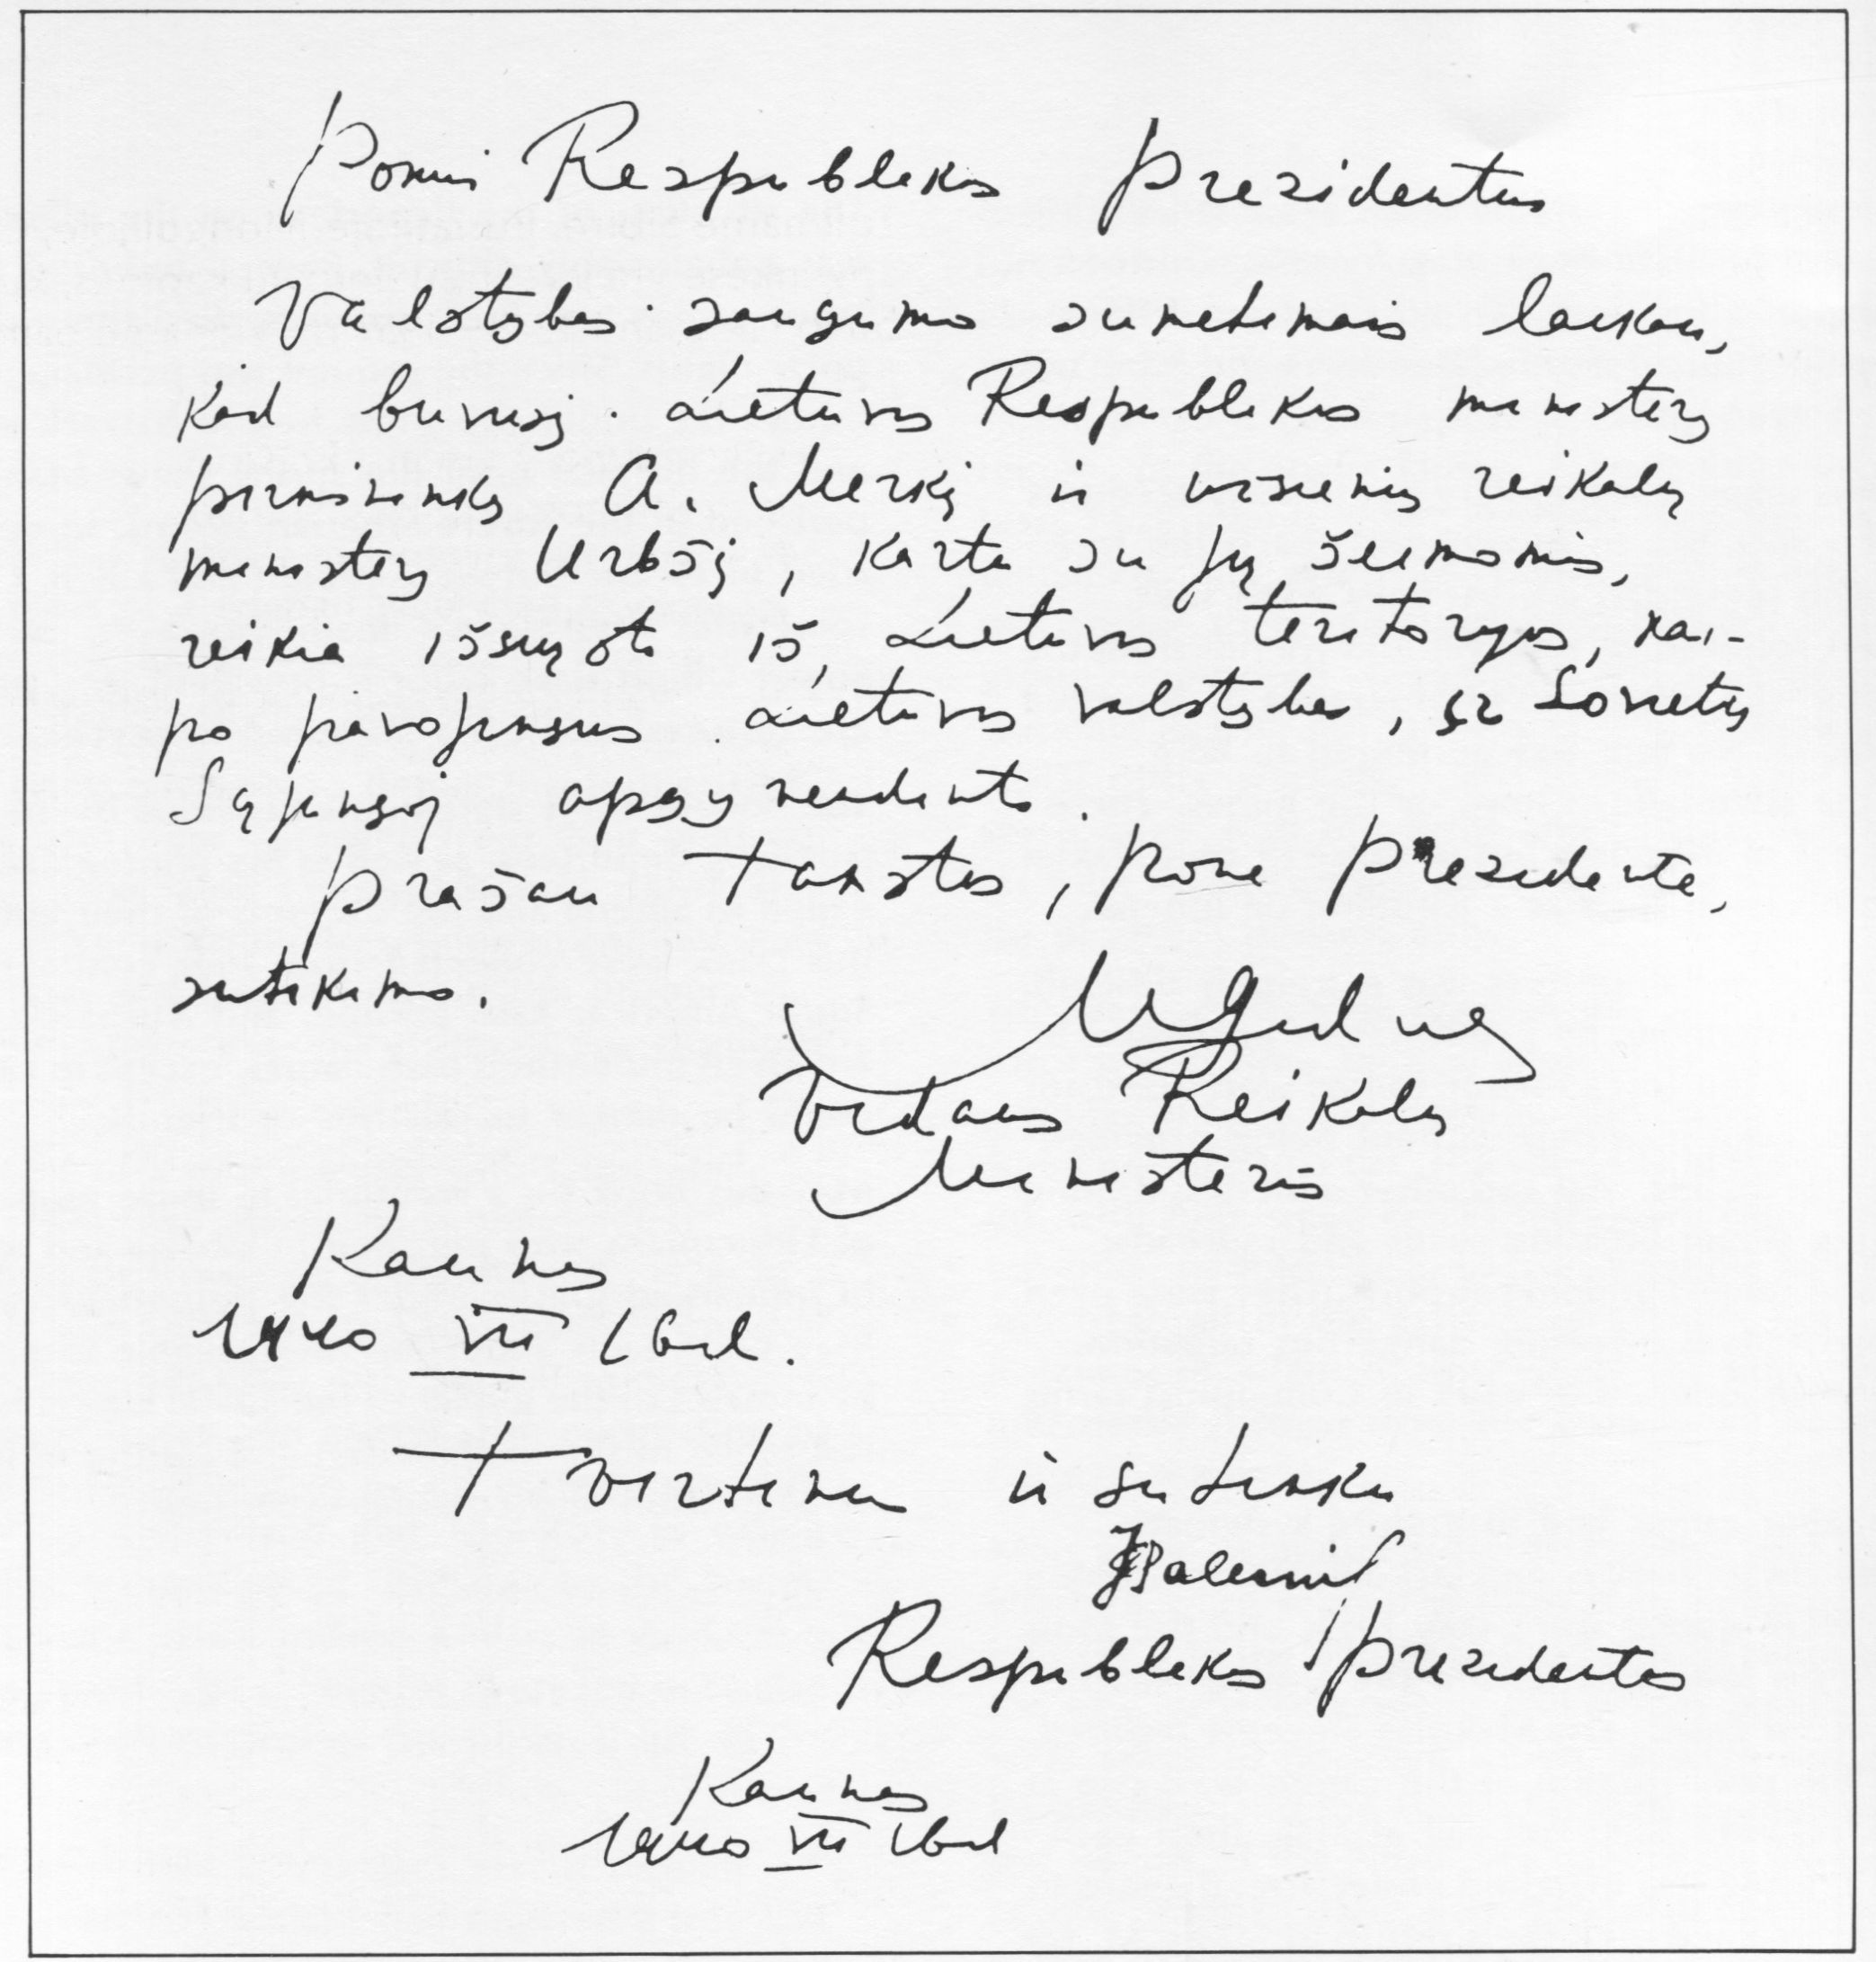 Ponui Respublikos Prezidentui
Valstybės saugumo sumetimais laikau,
kad buvusį Lietuvos Respublikos ministerį
pirmininką A. Merkį ir užsienių reikalų
ministerį Urbšį, kartu su jų šeimomis,
reikia išsiųsti iš Lietuvos teritorijos, kai-
po pavojingus Lietuvos valstybei, ir Sovietų
Sąjungoj apgyvendinti.
Prašau Tamstos, pone Prezidente,
sutikimo.
MGedvilas
Vidaus Reikalų
Ministeris
Kaunas
1940 VII 16d.
Tvirtinu ir sutinku
JPaleckis
Respublikos Prezidentas
Kaunas
1940 VII 16d